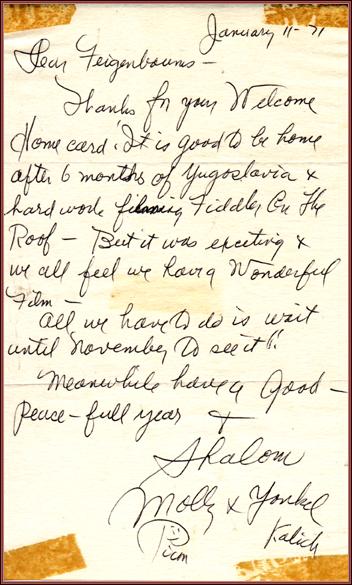 January 11-71
Dear Feigenbaums -
Thanks for your Welcome
Home card. It is good to be home
after 6 months of Yugoslavia &
hard work filming Fiddler On The
Roof - But it was exciting &
we all feel we have a Wonderful
Film -
All we have to do is wait
until November to see it!!
Meanwhile have a Good -
Peace-full year &
Shalom
Molly & Yonkel
Picon Kalich